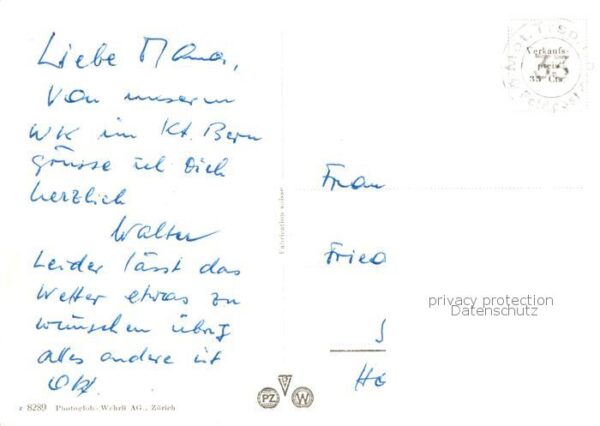 Liebe Mama,
Von unserem
WK im Kt. Bern
grüsse ich Dich
herzlich
Walter
Leider lässt das
Wetter etwas zu
wünschen übrig
alles andere ist
OK
Verkaufs-
preis
35 Cts.
33
Feldpost
Fabrication suisse
Frau
Fried
S
privacy protection
Datenschutz
PZ
W
r 8289 Photoglob-Wehrli AG., Zürich